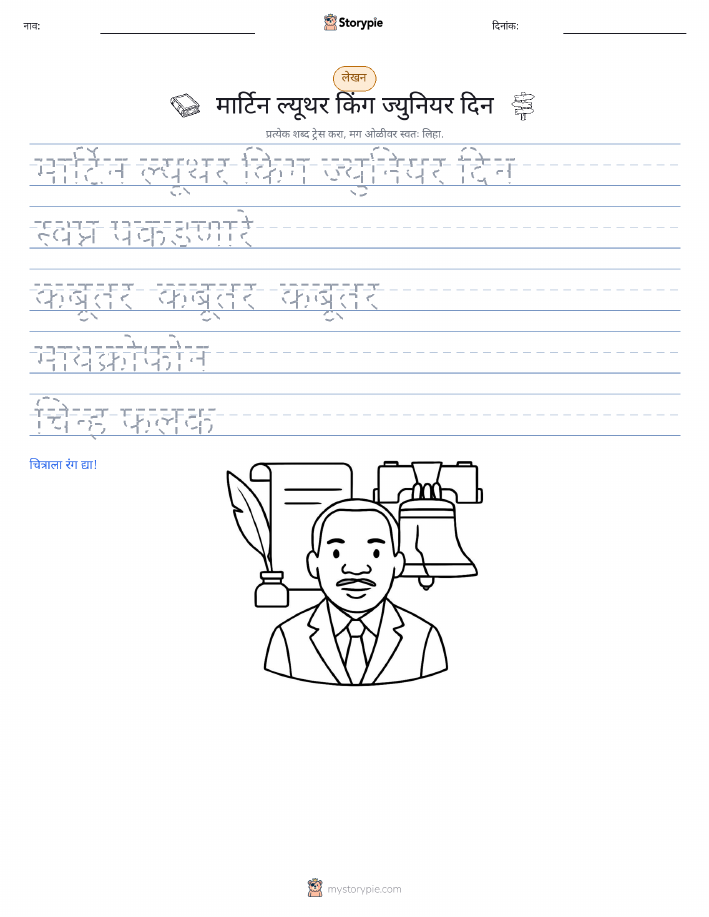 नाव:
Storypie
दिनांक:
लेखन
मार्टिन ल्यूथर किंग ज्युनियर दिन
प्रत्येक शब्द ट्रेस करा, मग ओळीवर स्वतः लिहा.
मार्टिन ल्यूथर किंग ज्युनियर दिन
स्वप्न पकडणारे
कबूतर कबूतर कबूतर
मायक्रोफोन
चिन्ह फलक
चित्राला रंग द्या!
mystorypie.com